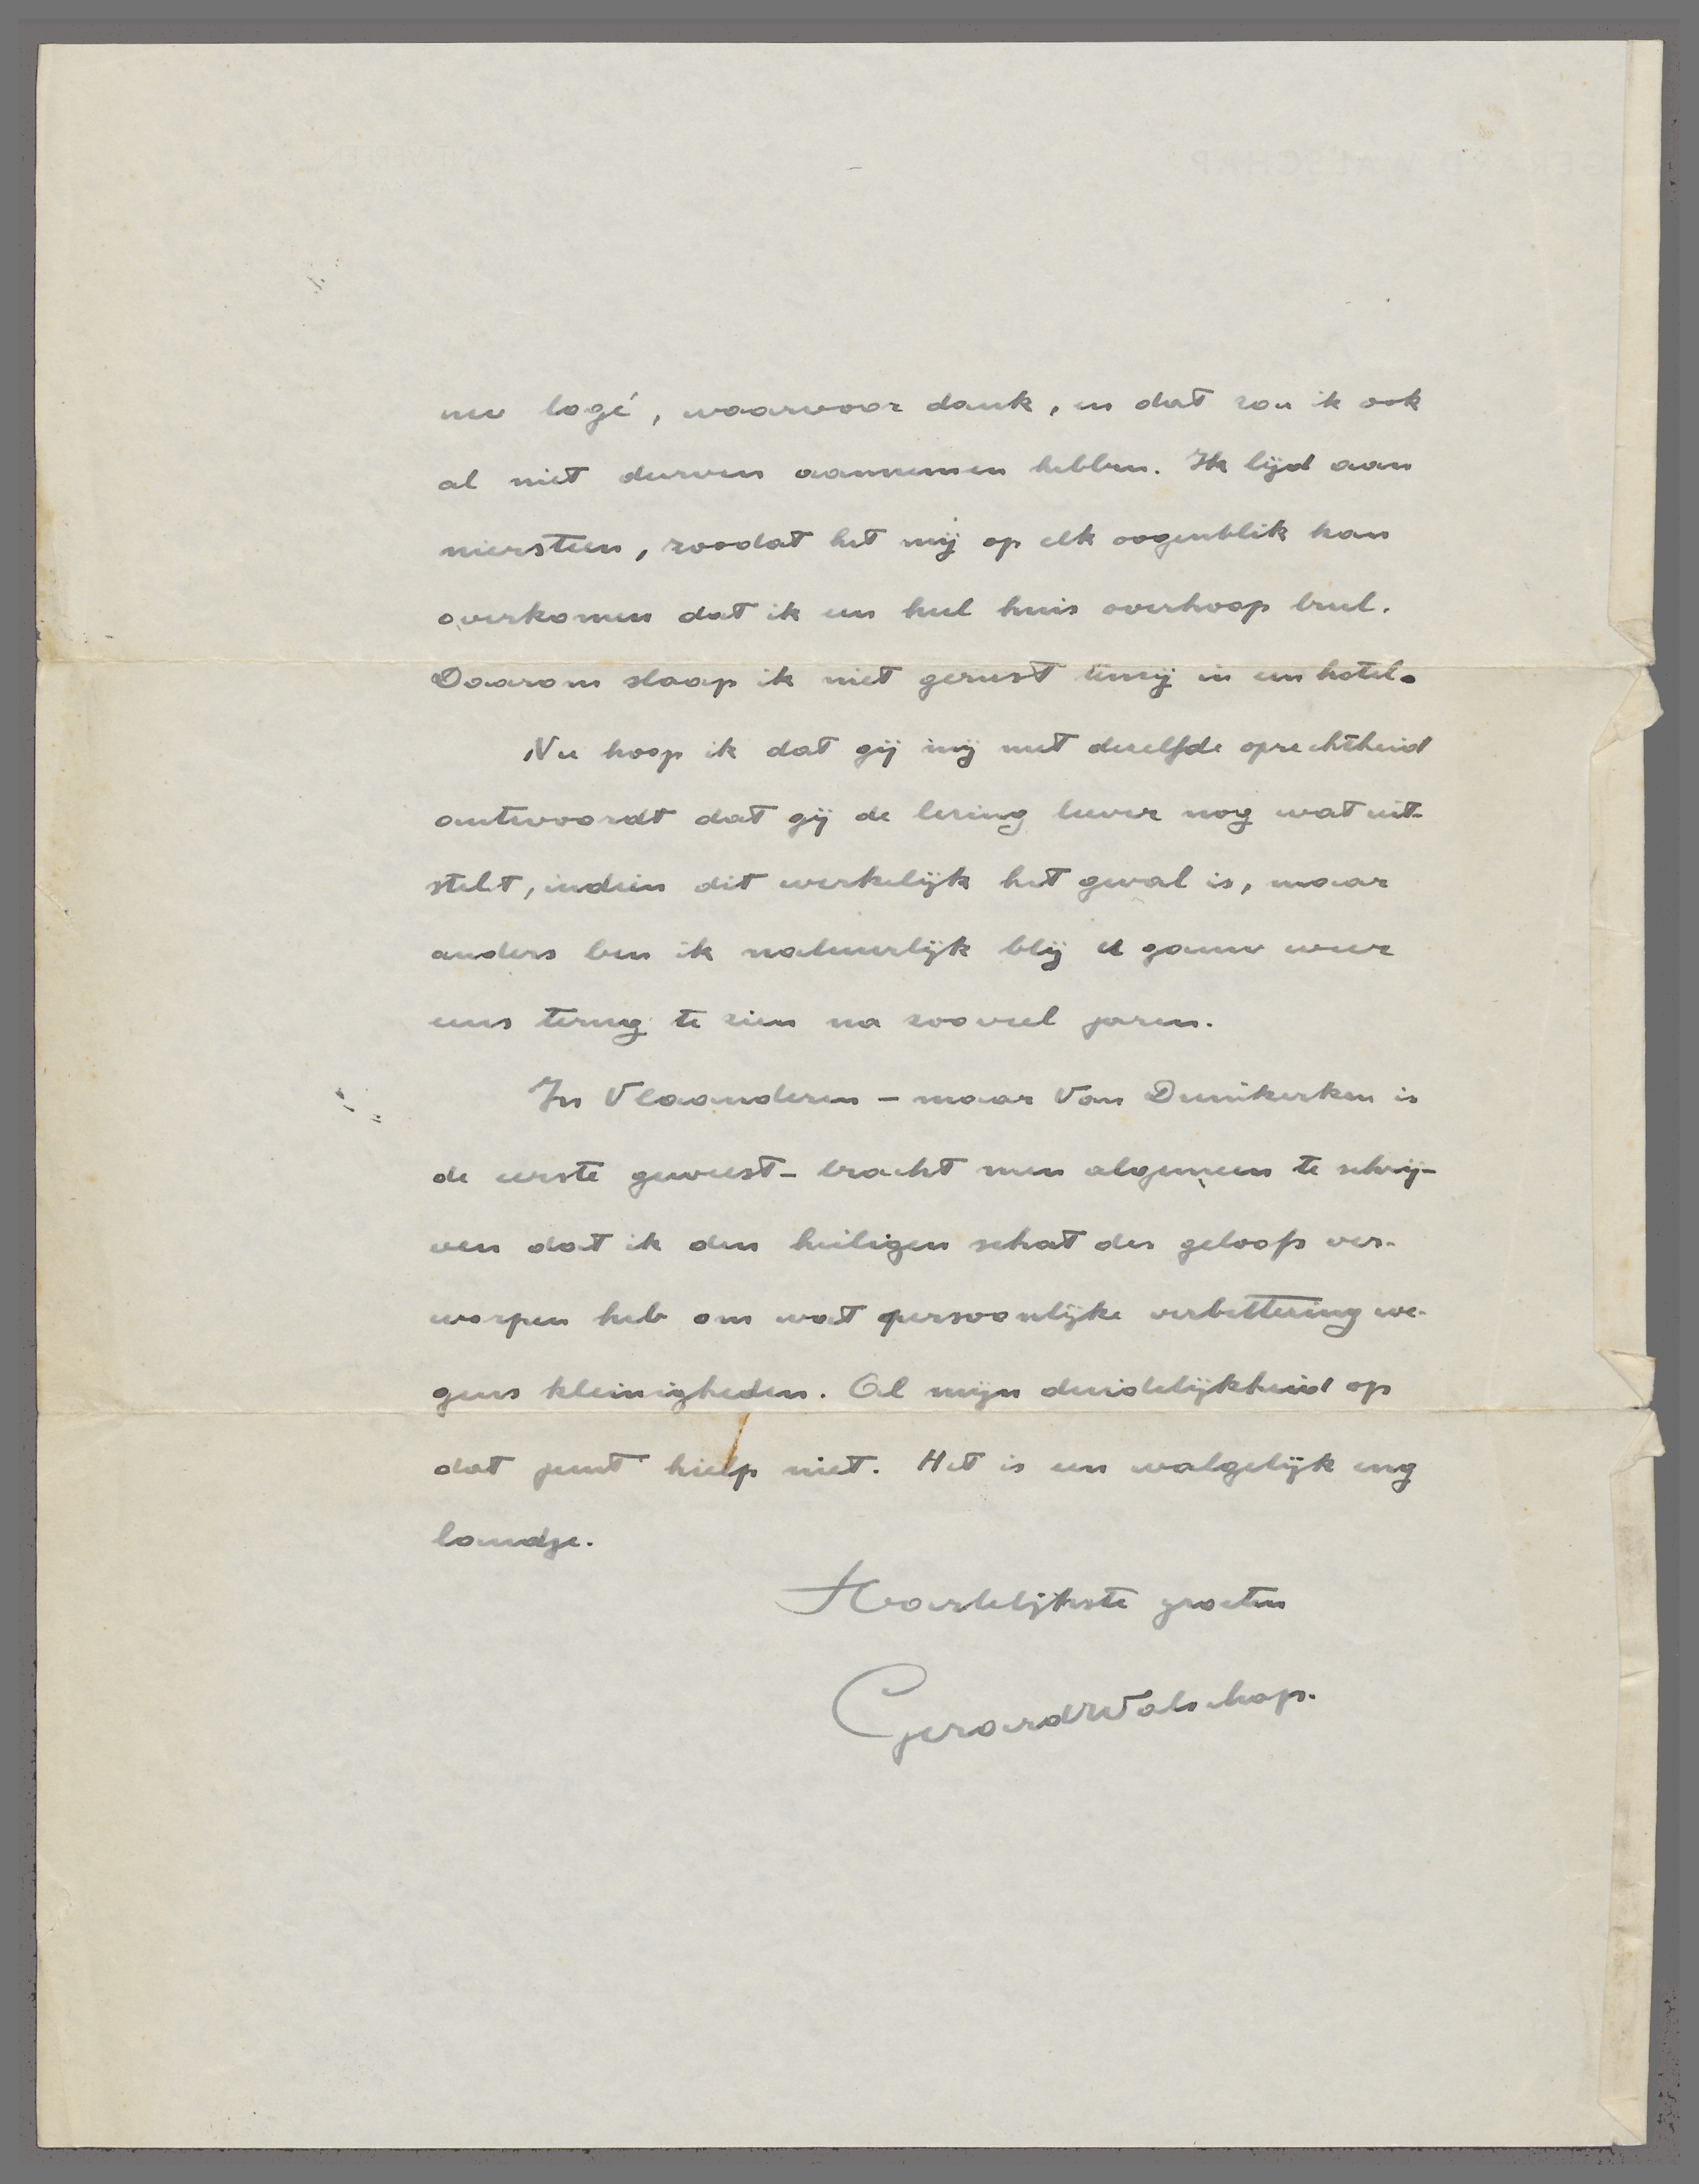 uw logé, waarvoor dank, en dat zou ik ook
al niet durven aannemen hebben. Ik lijd aan
niersteen, zoodat het mij op elk oogenblik kan
overkomen dat ik een heel huis overhoop brul.
Daarom slaap ik niet gerust tenzij in een hotel.
Nu hoop ik dat gij mij met dezelfde oprechtheid
antwoordt dat gij de lezing liever nog wat uit-
stelt, indien dit werkelijk het geval is, maar
anders ben ik natuurlijk blij U gauw weer
eens terug te zien na zooveel jaren.
In Vlaanderen – maar Van Duinkerken is
de eerste geweest – tracht men algemeen te schrij-
ven dat ik den heiligen schat des geloofs ver-
worpen heb om wat persoonlijke verbittering we-
gens kleinigheden. Al mijn duidelijkheid op
dat punt hielp niet. Het is een walgelijk eng
landje.
Hartelijkste groeten
Gerard Walschap.